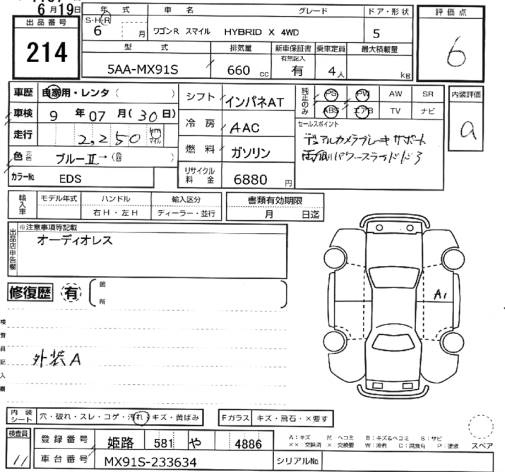 6月19日
出品番号
214
年式
車名
グレード
ドア・形状
S・H・R
6
月
ワゴンR スマイル
HYBRID X 4WD
5
型式
排気量
新車保証書
有無記入
乗車定員
最大積載量
5AA-MX91S
660 cc
有
4人
kg
評価点
6
車歴
自家用・レンタ( )
車検
9年07月(30日)
走行
2,250
色
ブルーⅡ→( )
カラーNo
EDS
シフト
インパネAT
冷房
AAC
燃料
ガソリン
リサイクル料金
6880
純正のみ
PS PW AW SR
ABS エアB TV ナビ
セールスポイント
デュアルカメラブレーキサポート
両側パワースライドドア
内装評価
a
輸入車
モデル年式
ハンドル
輸入区分
右H・左H
ディーラー・並行
書類有効期限
月 日迄
出品店申告欄
※注意事項等記載
オーディオレス
修復歴
有
箇所
検査員記入欄
外装A
A1
内装シート
穴・破れ・スレ・コゲ・汚れ・キズ・黄ばみ
Fガラス
キズ・飛石・×要す
検査員
11
登録番号
姫路 581 や 4886
車台番号
MX91S-233634
シリアルNo
A:キズ
スペア